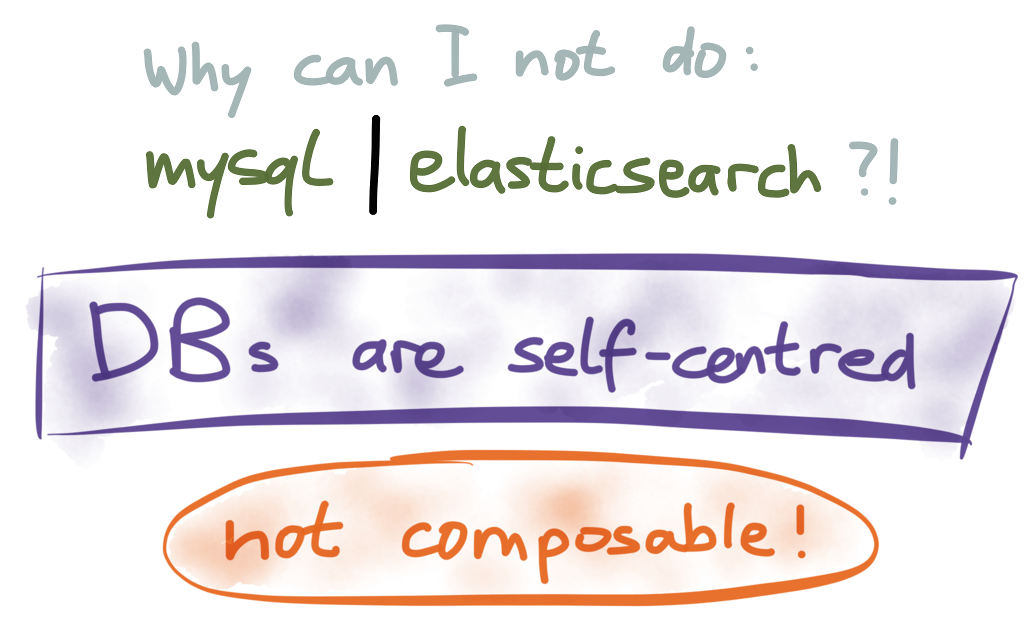 Why can I not do:
mysql | elasticsearch ?!
DBs are self-centred
not composable!